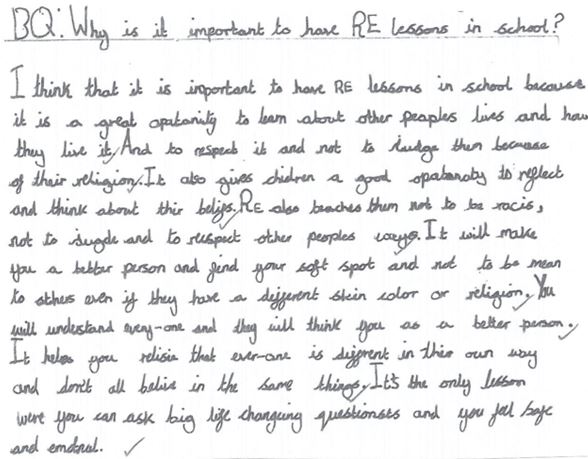 BQ: Why is it important to have RE lessons in school?
I think that it is inportant to have RE lessons in school because
it is a great opatanity to learn about other peaples lives and how
they live it, And to respect it and not to Judge them because
of their religion. It also gives chidren a good opatanaty to reflect
and think about thir belifs. RE also teaches them not to be racis,
not to jugde and to respect other peoples ways. It will make
you a better person and find your soft spot and not to be mean
to others even if they have a different skin color or religion. You
will understand every-one and they will think you as a better person.
It helps you relisie that ever-one is diffrent in thier own way
and don't all belive in the same things. It's the only lesson
were you can ask big life changing questionsts and you feel safe
and